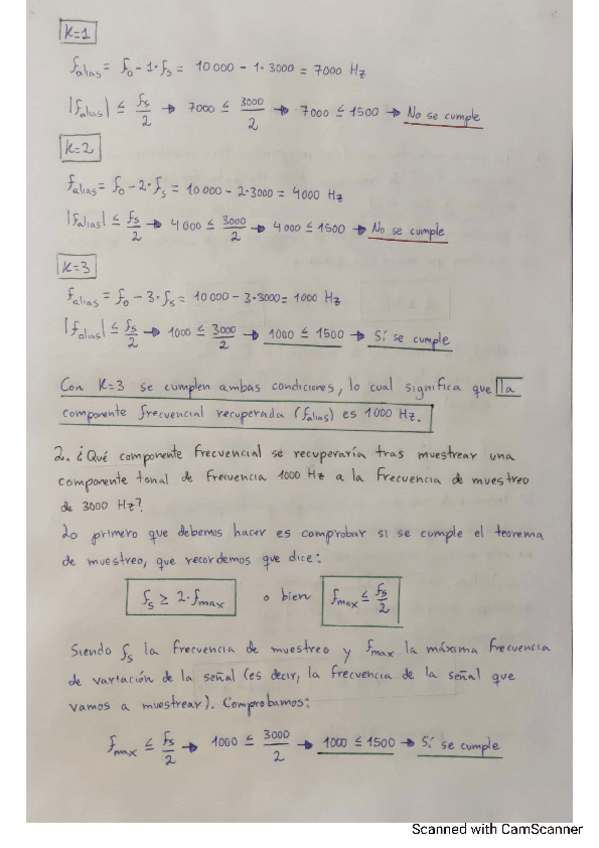 K=1
f_alias = f_0 - 1·f_s = 10 000 - 1·3000 = 7000 Hz
|f_alias| ≤ f_s/2 → 7000 ≤ 3000/2 → 7000 ≤ 1500 → No se cumple
K=2
f_alias = f_0 - 2·f_s = 10 000 - 2·3000 = 4000 Hz
|f_alias| ≤ f_s/2 → 4000 ≤ 3000/2 → 4000 ≤ 1500 → No se cumple
K=3
f_alias = f_0 - 3·f_s = 10 000 - 3·3000 = 1000 Hz
|f_alias| ≤ f_s/2 → 1000 ≤ 3000/2 → 1000 ≤ 1500 → Sí se cumple
Con K=3 se cumplen ambas condiciones, lo cual significa que la
componente frecuencial recuperada (f_alias) es 1000 Hz.
2. ¿Qué componente frecuencial se recuperaría tras muestrear una
componente tonal de frecuencia 1000 Hz a la frecuencia de muestreo
de 3000 Hz?
Lo primero que debemos hacer es comprobar si se cumple el teorema
de muestreo, que recordemos que dice:
f_s ≥ 2·f_max o bien f_max ≤ f_s/2
Siendo f_s la frecuencia de muestreo y f_max la máxima frecuencia
de variación de la señal (es decir, la frecuencia de la señal que
vamos a muestrear). Comprobamos:
f_max ≤ f_s/2 → 1000 ≤ 3000/2 → 1000 ≤ 1500 → Sí se cumple
Scanned with CamScanner